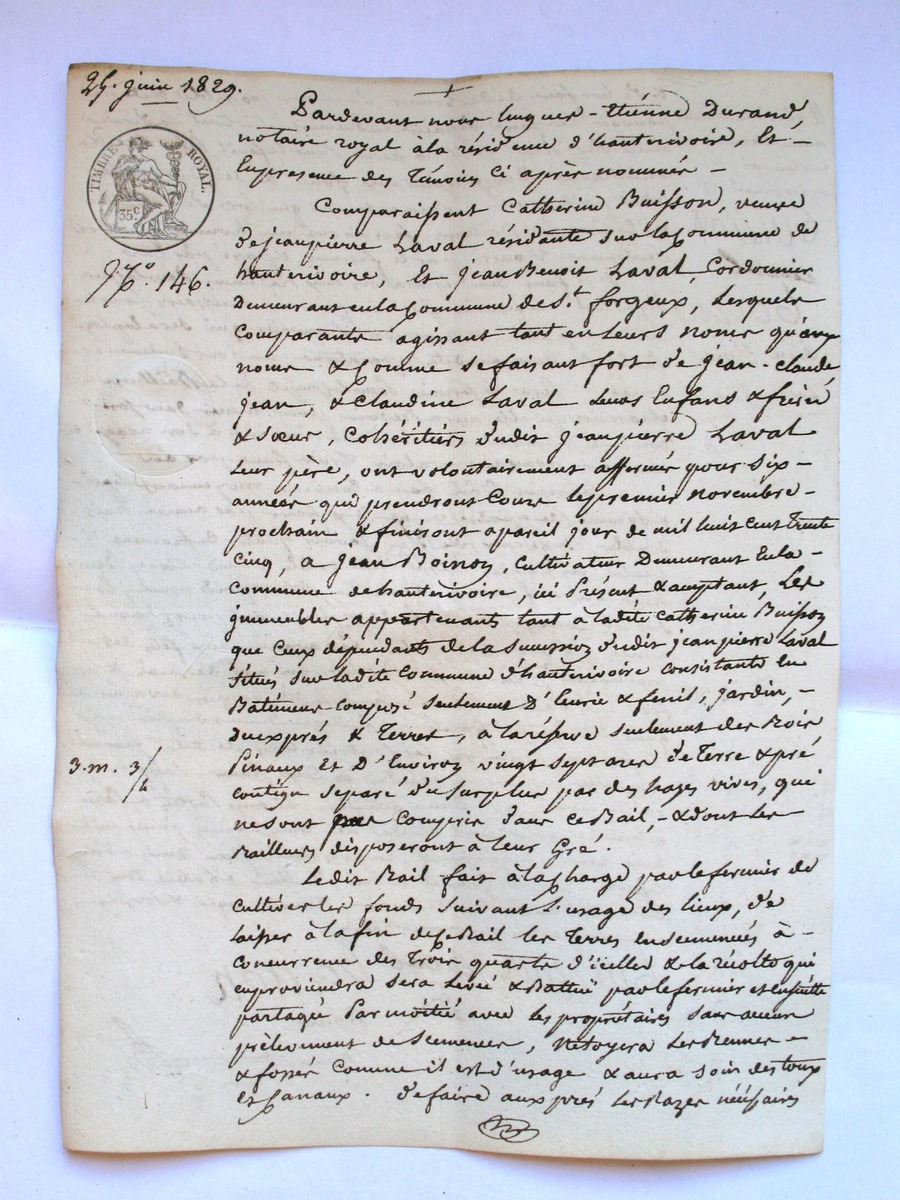 25. juin 1829.
TIMBRE ROYAL.
35 c
N.o 146.
Pardevant nous hugues-Etienne Durand,
notaire royal à la résidence d'hauterivoire, Et -
En presence des Témoins Ci après nommés -
Comparaissent Catherine Buisson, veuve
de jeanpierre Laval résidante sur la Commune de
hauterivoire, Et jean Benoit Laval, Cordonnier
Demeurant en la Commune de St. forgeux, Lesquels
Comparants agissant tant en leurs noms qu'aux
noms & Comme se faisant fort de jean-claude
jean, & Claudine Laval leurs Enfans & frères
& sœur, Cohéritiers dudit jeanpierre Laval
Leur père, ont volontairement affermés pour six -
années qui prendront Cours le premier novembre -
prochain & finiront a pareil jour de mil huit Cent Trente
cinq, a jean Boinon, Cultivateur Demeurant En la -
Commune de hauterivoire, ici Présent & acceptant, Les
jmmeubles appartenants tant à ladite Catherine Buisson
que Ceux dépendants de la succession dudit jeanpierre Laval
situés sur ladite Commune d'hauterivoire consistants en
Batimens composé seulement D'Ecurie & fenil, jardin, -
Deux prés & Terres, à la réserve seulement des Bois
Pinaux Et D'Environ vingt sept ares de Terre & pré
contigu separé du surplus par des hayes vives, qui
ne sont pas Compris dans ce Bail, - & dont les
Bailleurs disposeront à leur Gré.
3. m. 3/4
Ledit Bail fait à la Charge par le fermier de
Cultiver les fonds suivant l'usage des lieux, de
laisser à la fin de ce Bail les Terres ensemencées à -
concurrence des Trois quarts d'icelles & la récolte qui
en proviendra sera levée & Battuë par le fermier et ensuitte
partagée Par moitié avec les propriétaires sans aucun
prélevement de semences, Netoyera les
& fossés Comme il est d'usage & aura soin des
Et Canaux. de faire aux prés les Razes nécéssaires